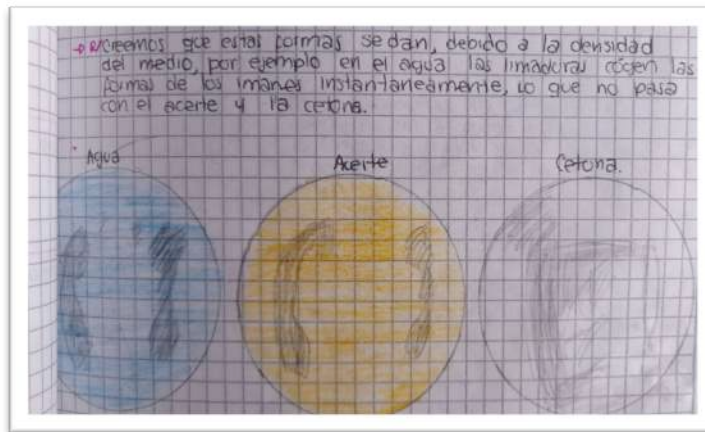 → R/ creemos que estas formas se dan, debido a la densidad
del medio, por ejemplo en el agua las limaduras cogen las
formas de los imanes instantaneamente, lo que no pasa
con el aceite y la cetona.
Agua Aceite Cetona.